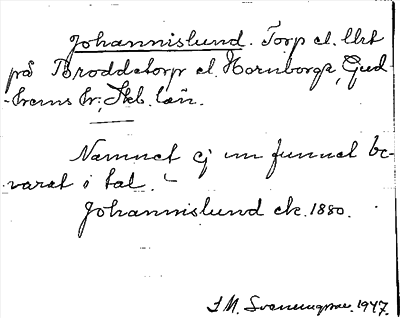 Johannislund. Torp el. lht
på Broddetorp el. Hornborga, Gud-
-hems hr; Skb. län.
Namnet ej um funnet be-
varat i tal.
Johannislund ek. 1880.
I. M. 1947.